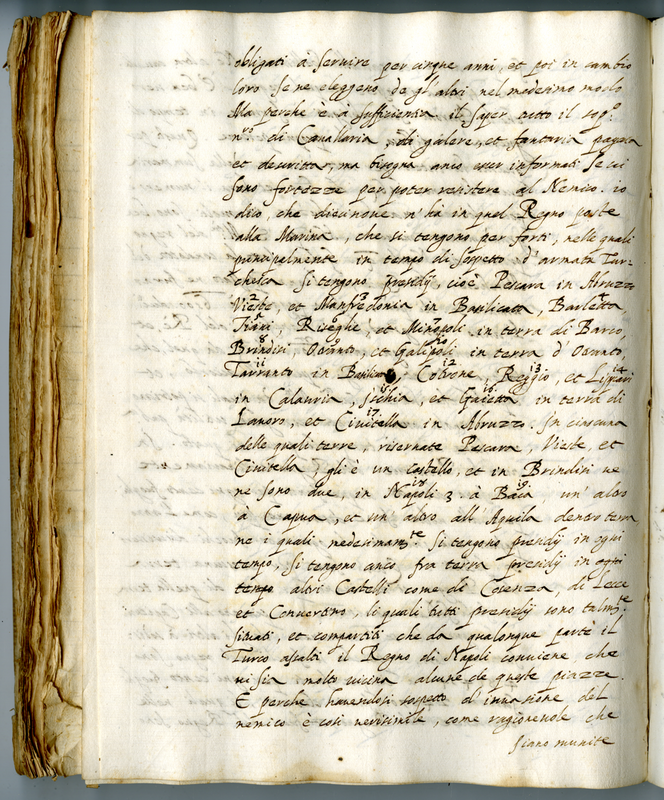 obligati à servire per cinque anni, et poi in cambio
loro se ne eleggono de gl'altri nel medesimo modo
Ma perche è à sufficientia il saper detto il sog.º
n.ro di Cavallaria, di galere, et fantaria pagata
et descritta, ma bisogna anco esser informati se vi
sono fortezze per poter resistere al Nemico. io
dico, che diecinove n'ha in quel Regno poste
alla Marina, che si tengono per forti, nelle quali
principalmente in tempo di sospetto d'armata Tur-
chesca si tengono presidij, cioè Pescara in Abruzzo
Vieste, et Manfredonia in Basilicata, Barletta
Trani, Biseglie, et Monopoli in terra di Barri,
Brindisi, Otranto, et Galipoli in terra d'Otranto,
Tarranto in Basilicata, Cotrone, Reggio, et Lipari
in Calavria, Ischia, et Gaietta in terra di
Lavoro, et Civitella in Abruzzo. In ciascuna
delle quali terre, riservate Pescara, Vieste, et
Civitella, gli è un castello, et in Brindisi ve
ne sono due, in Napoli 3. à Baia un'altro
à Capua, et un'altro all'Aquila dentro terra
ne i quali medesimam.te si tengono presidij in ogni
tempo, si tengono anco fra terra presidij in ogni
tempo altri Castelli come di Cosenza, di Lecce
et Convertino, li quali tutti presidij sono talm.te
situati, et compartiti che da qualonque parte il
Turco assalti il Regno di Napoli conviene, che
vi sia molto vicina alcune de queste piazze.
E perche havendosi sospetto d'invasione del
nemico è cosi verisimile, come ragionevole che
siano munite